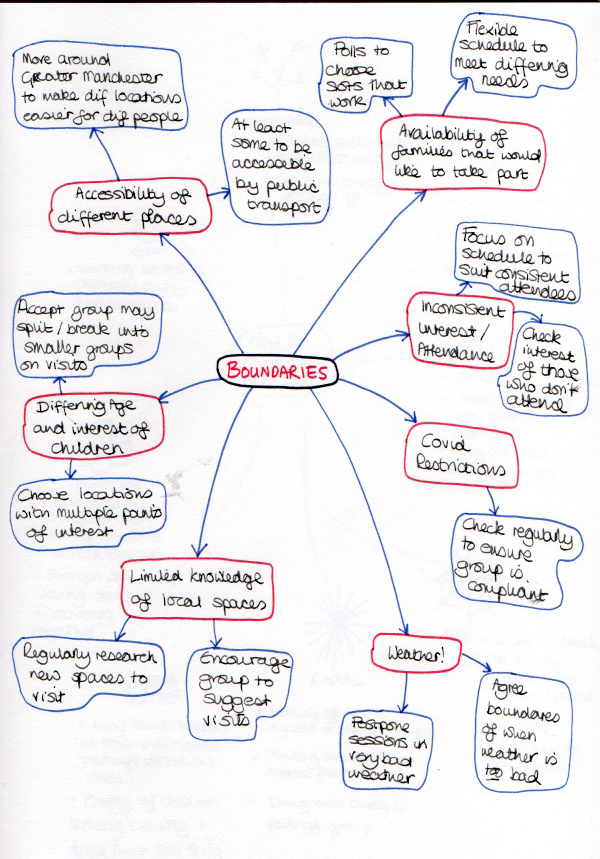 BOUNDARIES
Accessibility of
different places
Move around
Greater Manchester
to make dif locations
easier for dif people
At least
some to be
accessible
by public
transport
Availability of
families that would
like to take part
Polls to
choose
that
work
Flexible
schedule to
meet differing
needs
Inconsistent
Interest /
Attendance
Focus on
schedule to
suit consistent
attendees
Check
interest
of those
who don't
attend
Covid
Restrictions
Check regularly
to ensure
group is
compliant
Weather!
Agree
boundaries
of when
weather is
too bad
Postpone
sessions in
very bad
weather
Limited knowledge
of local spaces
Encourage
group to
suggest
visits
Regularly research
new spaces to
visit
Differing Age
and interest of
children
Accept group may
split / break into
smaller groups
on visits
Choose locations
with multiple points
of interest